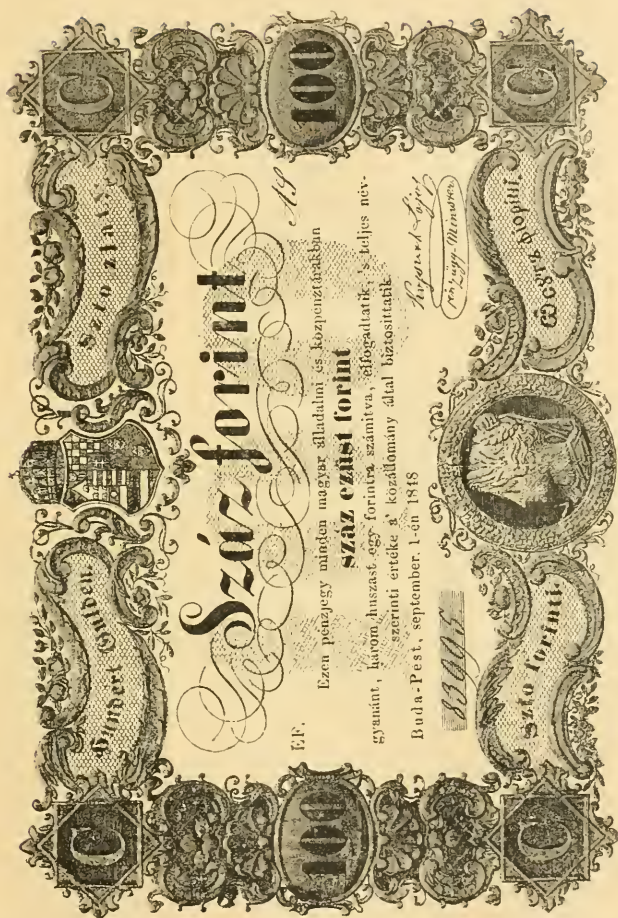 C
Hundert Gulden
C
Száz forint
100
100
EF.
Ezen pénzjegy minden magyar álladalmi és közpénztárakban
száz ezüst forint
gyanánt, három huszast egy forintra számítva, elfogadtatik, 's teljes név-
szerinti értéke a' közállomány által biztosíttatik
Buda-Pest, september. 1-én 1848
Kossuth Lajos
pénzügy-Minister
C
szto forinti.
C